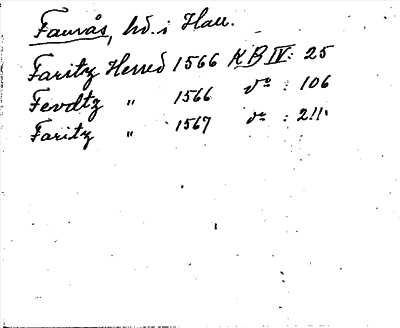 Faurås, hd. i Hall.
Faritz Herred 1566 KB IV: 25
Fevdtz " 1566 do : 106
Faritz " 1567 do : 211.